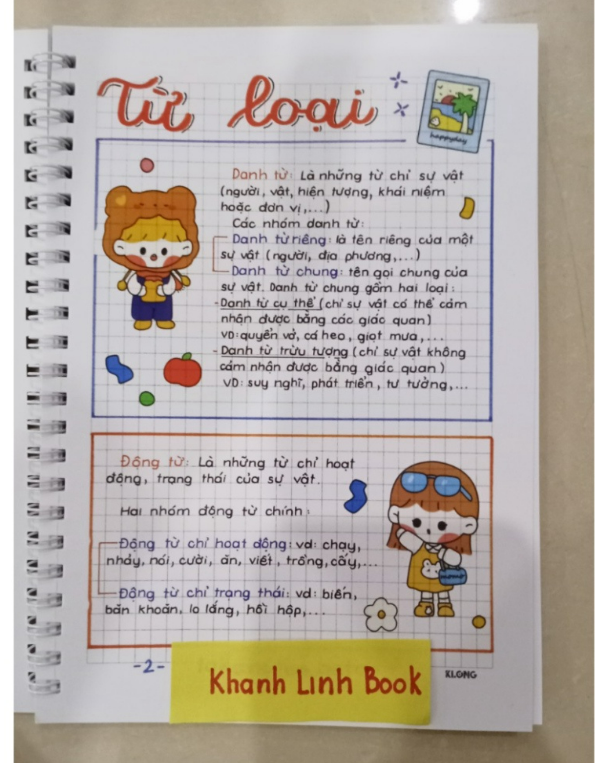 Từ loại
happyday
Danh từ: Là những từ chỉ sự vật
(người, vật, hiện tượng, khái niệm
hoặc đơn vị,...)
Các nhóm danh từ:
Danh từ riêng: là tên riêng của một
sự vật (người, địa phương,...)
Danh từ chung: tên gọi chung của
sự vật. Danh từ chung gồm hai loại:
-Danh từ cụ thể (chỉ sự vật có thể cảm
nhận được bằng các giác quan)
VD: quyển vở, cá heo, giọt mưa,...
-Danh từ trừu tượng (chỉ sự vật không
cảm nhận được bằng giác quan)
VD: suy nghĩ, phát triển, tư tưởng,...
Động từ: Là những từ chỉ hoạt
động, trạng thái của sự vật.
Hai nhóm động từ chính:
Động từ chỉ hoạt động: vd: chạy,
nhảy, nói, cười, ăn, viết, trồng, cấy,...
Động từ chỉ trạng thái: vd: biến,
băn khoăn, lo lắng, hồi hộp,...
-2-
KLONG
Khanh Linh Book